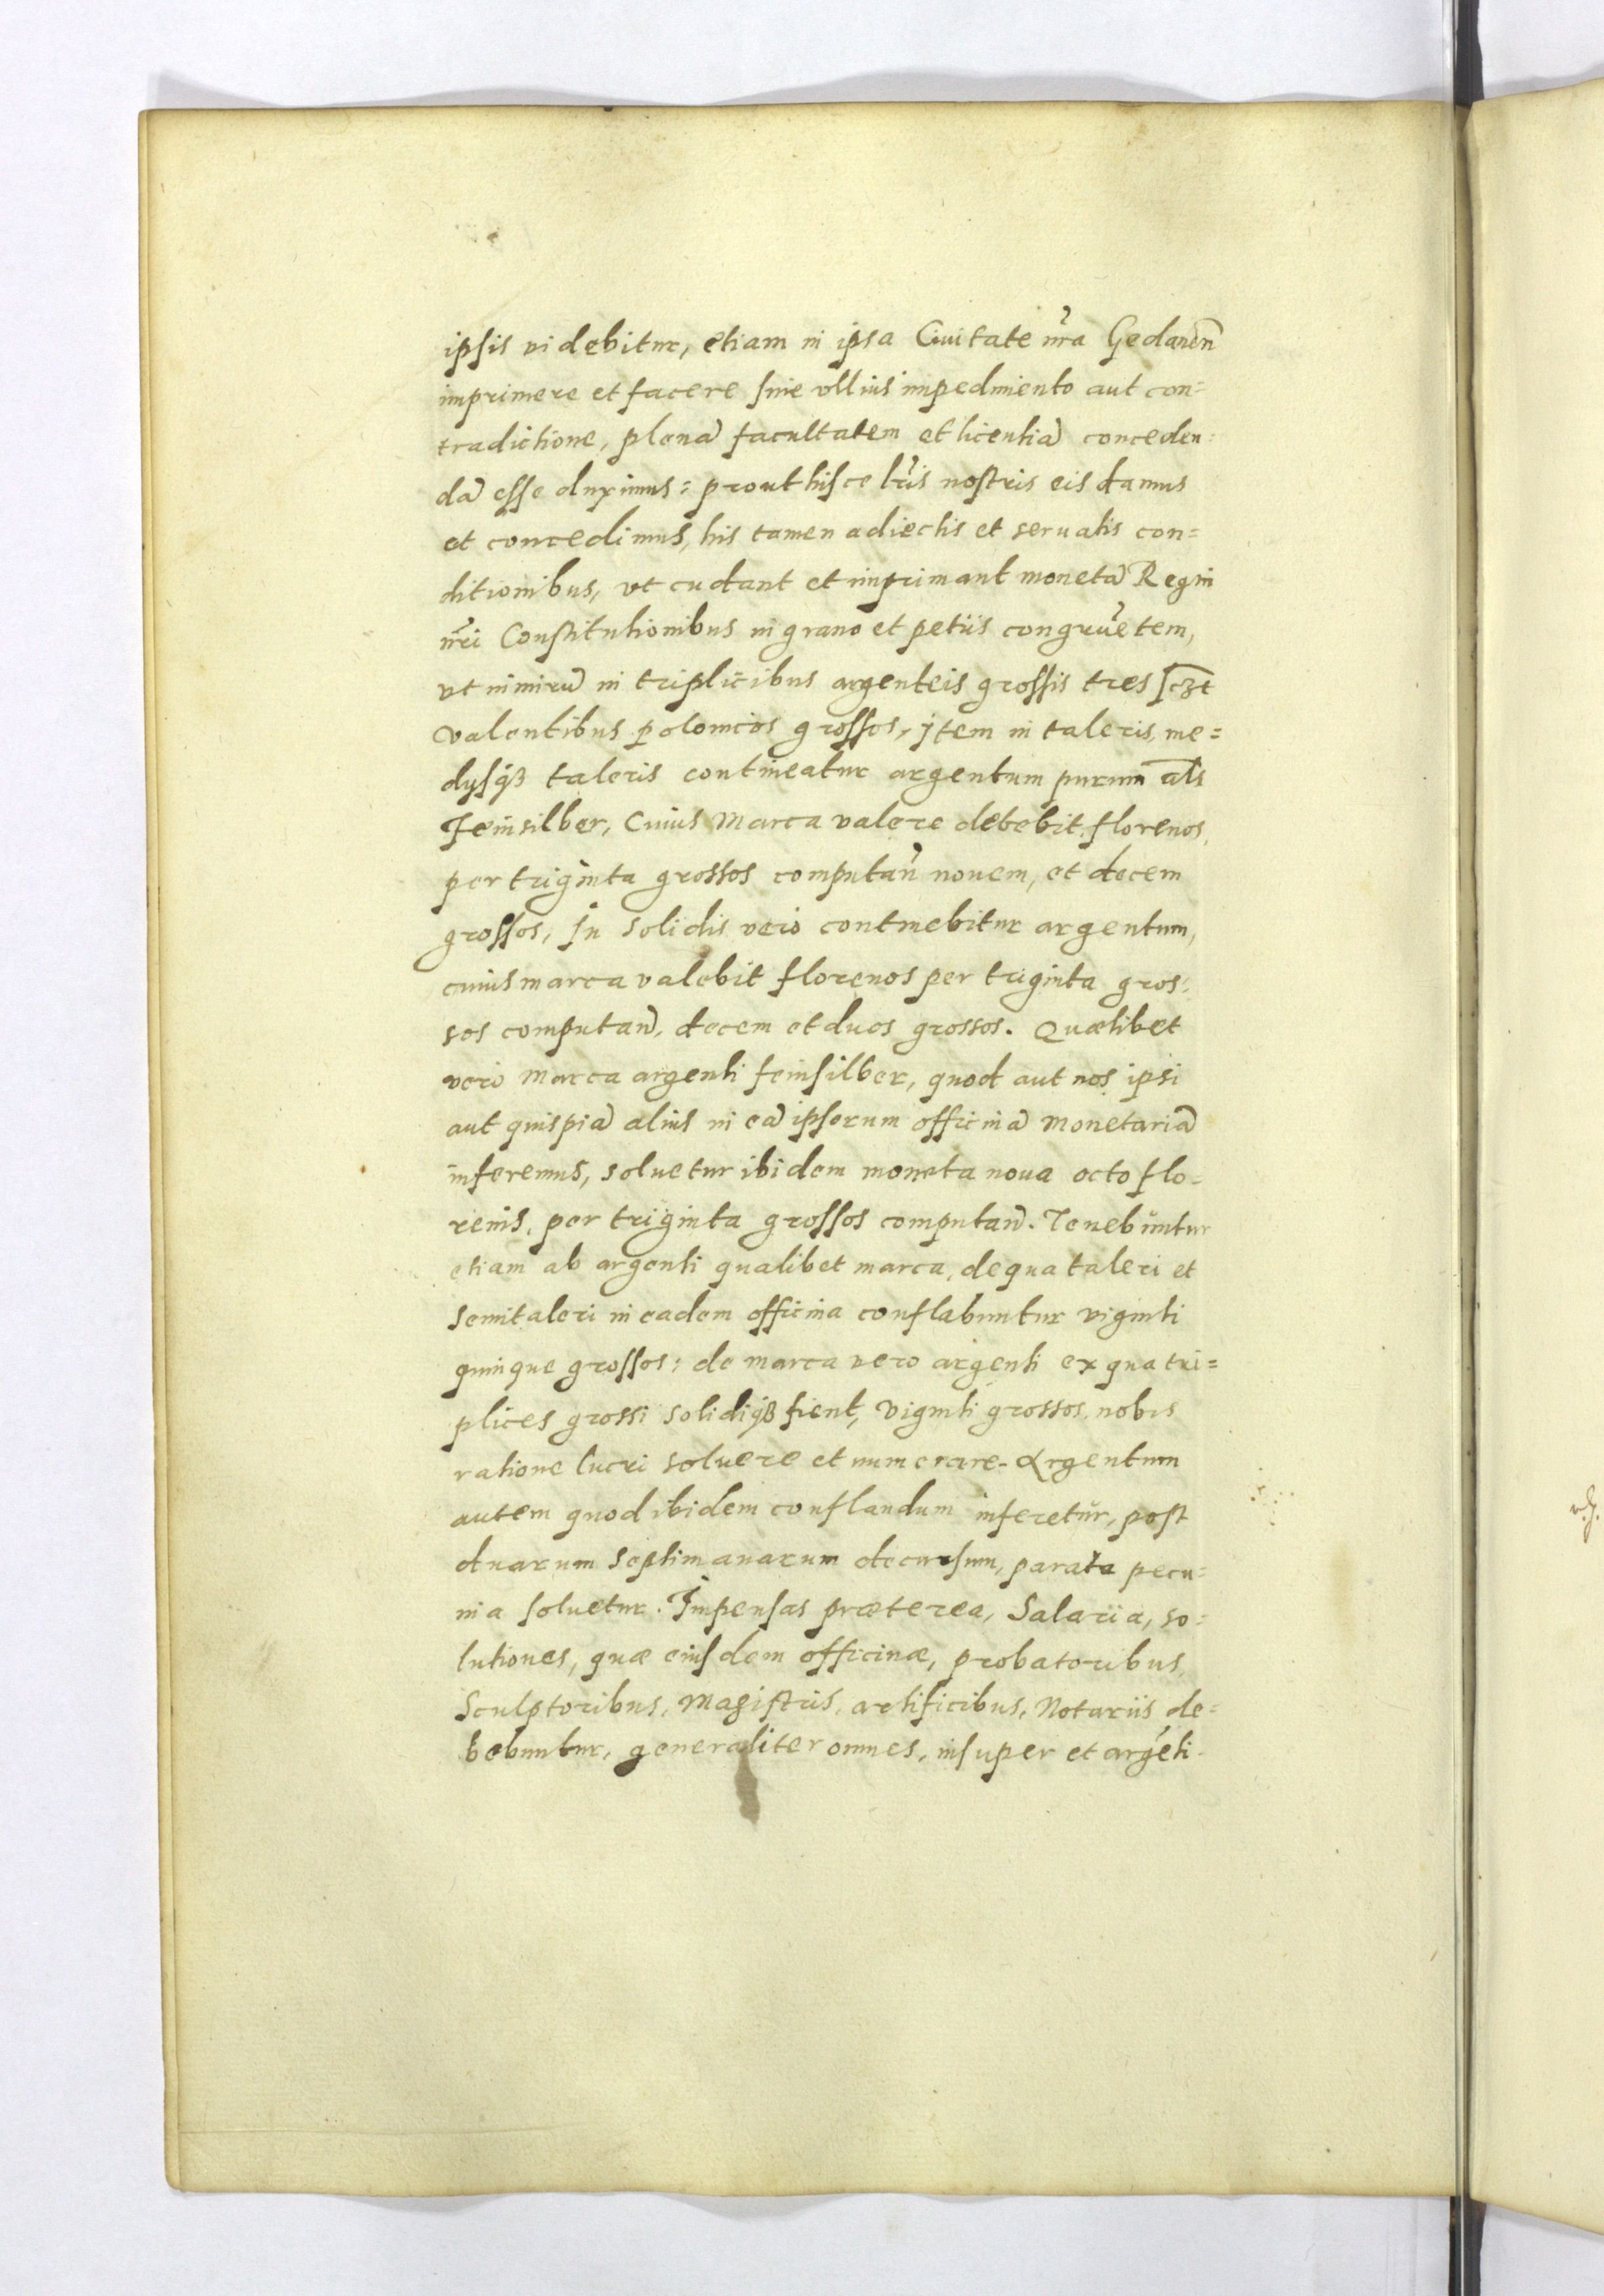 ipsis videbitur, etiam in ipsa Ciuitate nr̃a Gedaneñ
imprimere et facere sine vllius impedimento aut con=
tradictione, plenã facultatem et licentiã conceden=
dã esse duximus: prout hisce lr̃is nostris eis damus
et concedimus, his tamen adiectis et seruatis con=
ditionibus, vt cudant et imprimant monetã Regni
nr̃i Constitutionibus in grano et petiis congruẽtem,
vt nimirũ in triplicibus argenteis grossis tres
valentibus polonicos grossos, jtem in taleris, me=
dysq3 taleris contineatur argentum purum al̃s
Feinsilber, Cuius Marca valere debebit florenos,
per triginta grossos computañ nouem, et decem
grossos, jn solidis vero continebitur argentum,
cuius marca valebit florenos per triginta gros=
sos computañ, decem et duos grossos. Quælibet
vero Marca argenti feinsilber, quod aut nos ipsi
aut quispiã alius in eã ipsorum officinã Monetariã
inferemus, soluetur ibidem moneta noua octo flo=
renis, per triginta grossos computañ. Tenebuntur
etiam ab argenti qualibet marca, de qua taleri et
semitaleri in eadem officina conflabuntur viginti
quinque grossos: de marca vero argenti ex qua tri=
plices grossi solidiq3 fient, viginti grossos nobis
ratione lucri soluere et numerare. Argentum
autem quod ibidem conflandum inferetur, post
duarum septimanarum decursum, parata pecu=
nia soluetur. Impensas præterea, Salaria, so=
lutiones, quæ eiusdem officinæ, probatoribus,
Sculptoribus, Magistris, artificibus, Notariis de=
bebuntur, generaliter omnes, insuper et argẽti